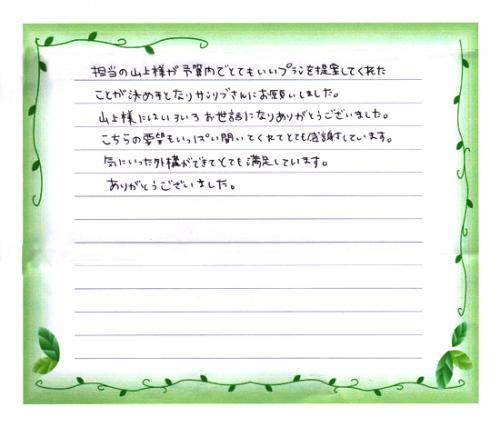 担当の山上様が予算内でとてもいいプランを提案してくれた
ことが決め手となりサンリブさんにお願いしました。
山上様にはいろいろお世話になりありがとうございました。
こちらの要望もいっぱい聞いてくれてとても感謝しています。
気にいった外構ができてとても満足しています。
ありがとうございました。